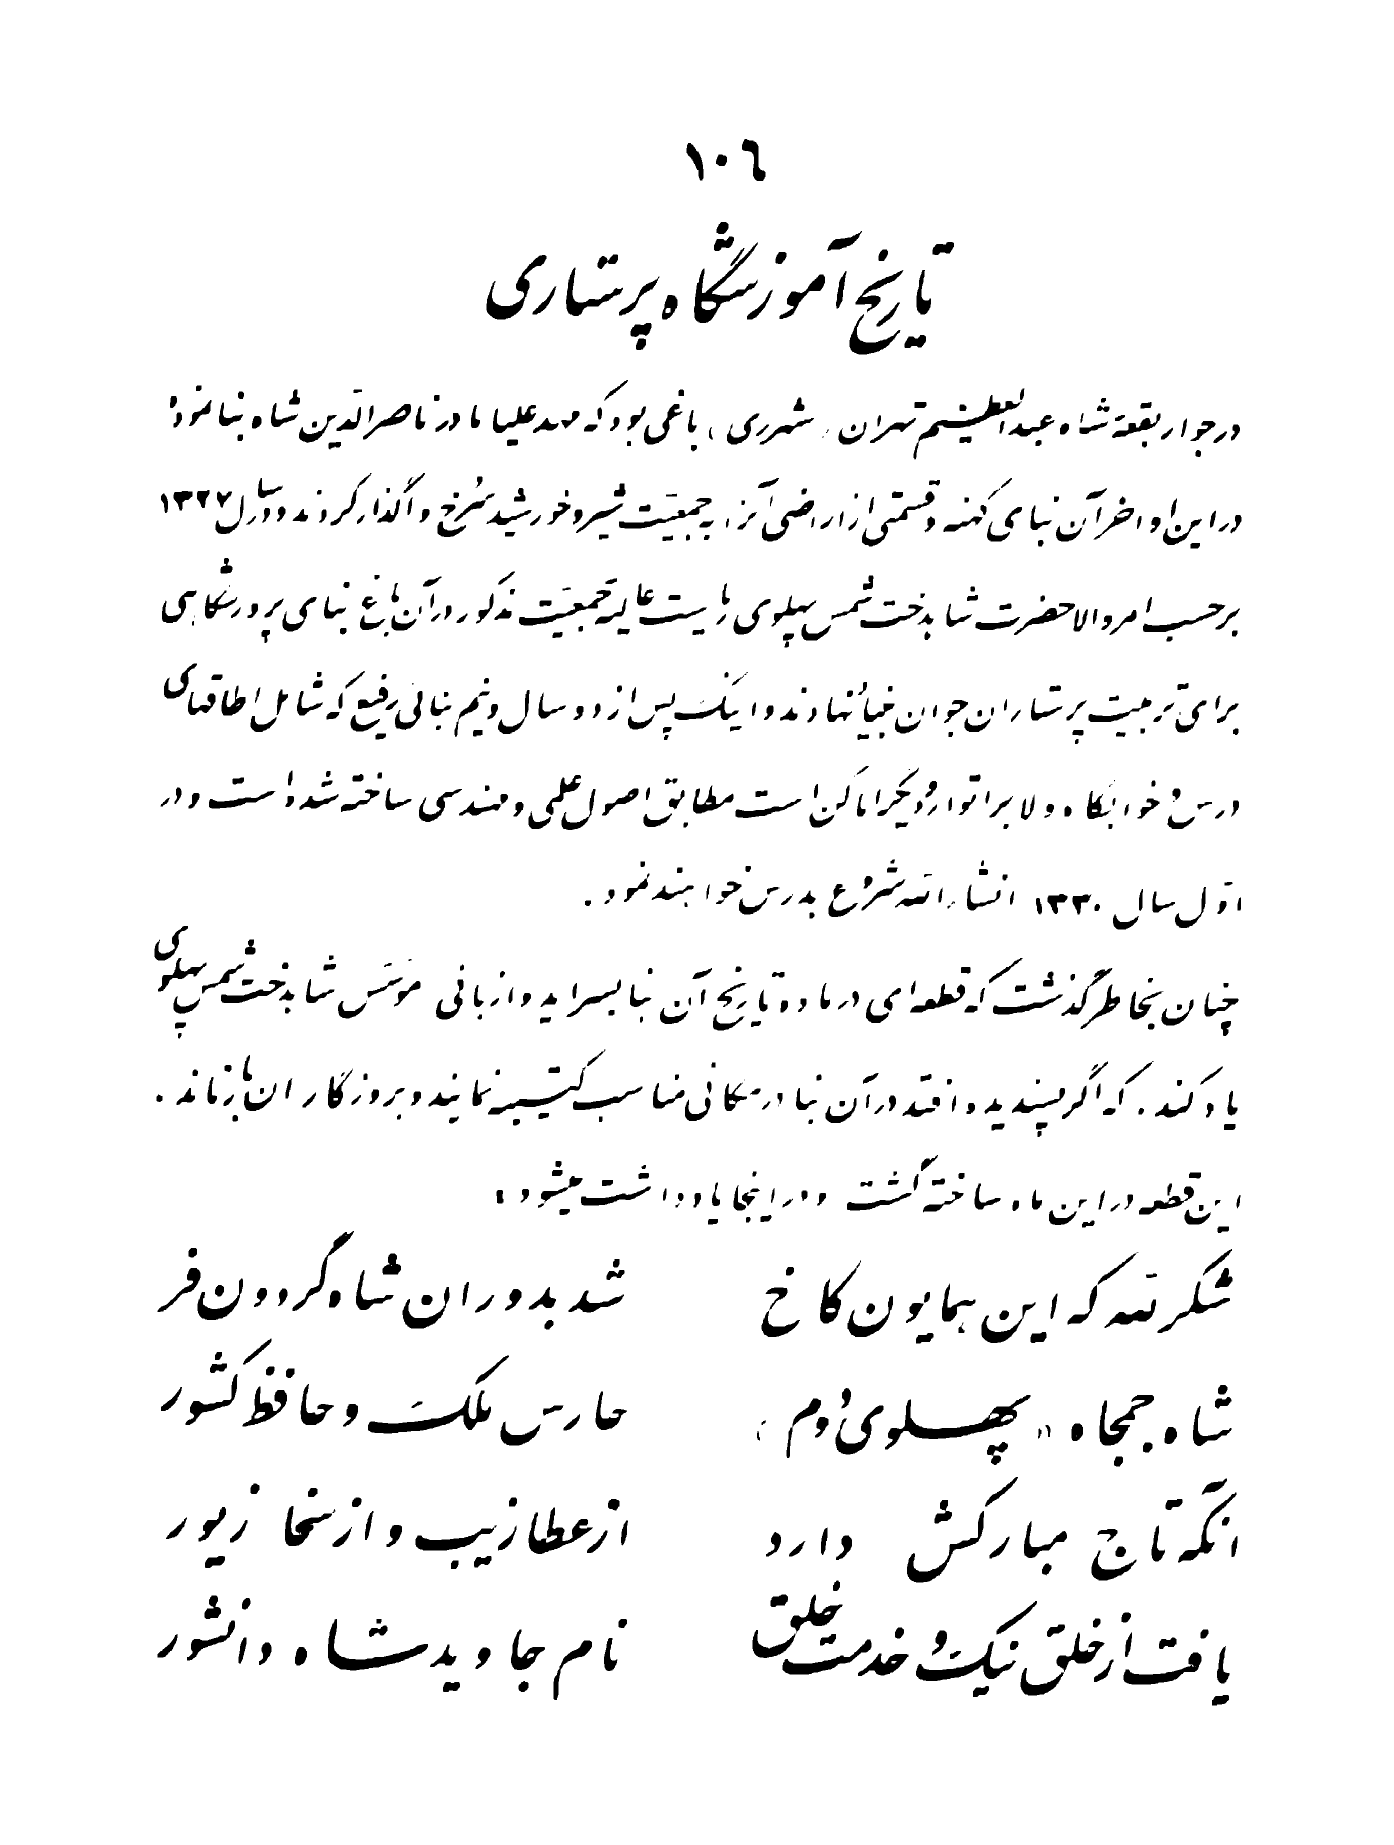 ۱۰۶
تاریخ آموزشگاه پرستاری
در جوار بقعهٔ شاه عبدالعظیم تهران (شهرری) باغی بود که مهد علیا مادر ناصرالدّین شاه بنا نمود
در این اواخر آن بنای کهنه و قسمتی از اراضی آنرا به جمعیّت شیر و خورشید سُرخ واگذار کردند و در سال ۱۳۲۷
بر حسب امر والاحضرت شاهدخت شمس پهلوی ریاست عالیه جمعیّت مذکور در آن باغ بنای پرورشگاهی
برای تربیت پرستاران جوان بنیاُ نهادند و اینک پس از دو سال و نیم بنائی رفیع که شامل اطاقهای
درس و خوابگاه و لابراتوار و دیگر اماکن است مطابق اصول علمی و مهندسی ساخته شده است و در
اوّل سال ۱۳۳۰ انشاءالله شروع بدرس خواهند نمود .
چنان بخاطر گذشت که قطعه‌ای در ماده تاریخ آن بنا بسراید و از بانی موسّس شاهدخت شمس پهلوی
یاد کند . که اگر پسندیده افتد در آن بنا در مکانی مناسب کتیبه نمایند و بروزگاران باز ماند .
این قطعه در این ماه ساخته گشت و در اینجا یادداشت میشود :
شکر لله که این همایون کاخ شد بدوران شاه گردون فر
شاه جمجاه «پهلوی دُوم» حارس ملک و حافظ کشور
آنکه تاج مبارکش دارد از عطا زیب و از سخا زیور
یافت از خلق نیک و خدمت خلق نام جاوید شاه دانشور